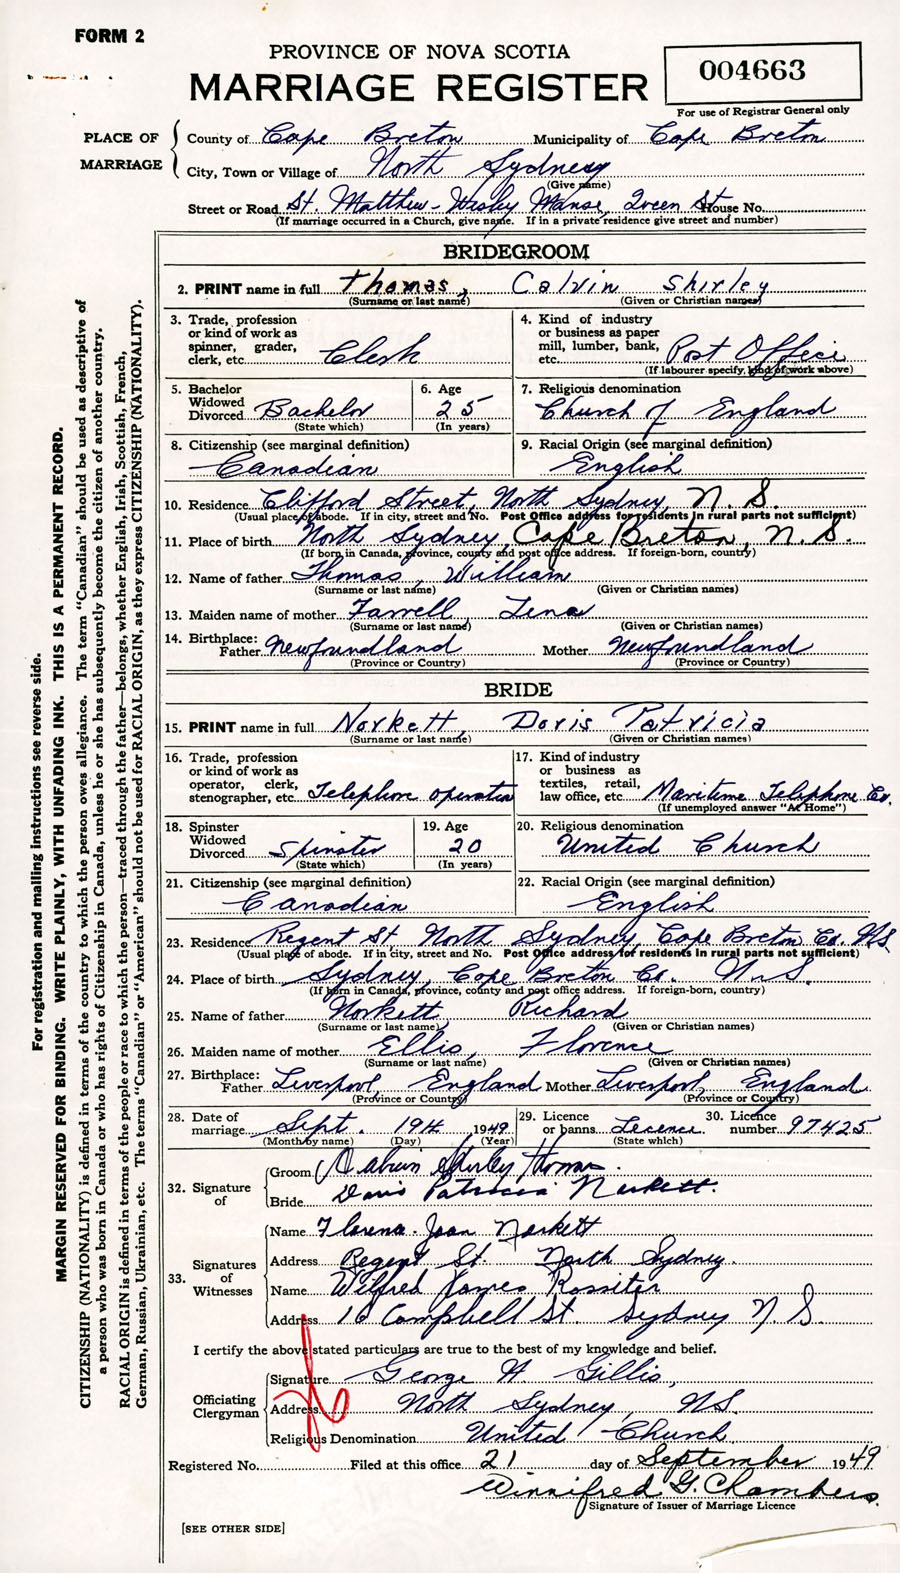 FORM 2
PROVINCE OF NOVA SCOTIA
MARRIAGE REGISTER
004663
For use of Registrar General only
PLACE OF MARRIAGE
County of Cape Breton Municipality of Cape Breton
City, Town or Village of North Sydney
(Give name)
Street or Road St. Matthew-Wesley Manse, Queen St House No.
(If marriage occurred in a Church, give name. If in a private residence give street and number)
BRIDEGROOM
2. PRINT name in full Thomas, Calvin Shirley
(Surname or last name) (Given or Christian names)
3. Trade, profession or kind of work as spinner, grader, clerk, etc. Clerk
4. Kind of industry or business as paper mill, lumber, bank, etc. Post Office
(If labourer specify, kind of work above)
5. Bachelor Widowed Divorced Bachelor
(State which)
6. Age 25
(In years)
7. Religious denomination
Church of England
8. Citizenship (see marginal definition)
Canadian
9. Racial Origin (see marginal definition)
English
10. Residence Clifford Street, North Sydney, N.S.
(Usual place of abode. If in city, street and No. Post Office address for residents in rural parts not sufficient)
11. Place of birth North Sydney, Cape Breton, N.S.
(If born in Canada, province, county and post office address. If foreign-born, country)
12. Name of father Thomas, William
(Surname or last name) (Given or Christian names)
13. Maiden name of mother Farrell, Lena
(Surname or last name) (Given or Christian names)
14. Birthplace: Father Newfoundland Mother Newfoundland
(Province or Country) (Province or Country)
BRIDE
15. PRINT name in full Norkett, Doris Patricia
(Surname or last name) (Given or Christian names)
16. Trade, profession or kind of work as operator, clerk, stenographer, etc. Telephone operator
17. Kind of industry or business as textiles, retail, law office, etc. Maritime Telephone Co.
(If unemployed answer "At Home")
18. Spinster Widowed Divorced Spinster
(State which)
19. Age 20
(In years)
20. Religious denomination
United Church
21. Citizenship (see marginal definition)
Canadian
22. Racial Origin (see marginal definition)
English
23. Residence Regent St. North Sydney, Cape Breton Co. N.S.
(Usual place of abode. If in city, street and No. Post Office address for residents in rural parts not sufficient)
24. Place of birth Sydney, Cape Breton Co. N.S.
(If born in Canada, province, county and post office address. If foreign-born, country)
25. Name of father Norkett, Richard
(Surname or last name) (Given or Christian names)
26. Maiden name of mother Ellis, Florence
(Surname or last name) (Given or Christian names)
27. Birthplace: Father Liverpool, England Mother Liverpool, England
(Province or Country) (Province or Country)
28. Date of marriage Sept. 1949
(Month by name) (Day) (Year)
29. Licence or banns Licence
(State which)
30. Licence number 97425
32. Signature of
Groom Calvin Shirley Thomas.
Bride Doris Patricia Norkett.
33. Signatures of Witnesses
Name Florence Joan Norkett
Address Regent St. North Sydney.
Name Wilfred James Rossiter
Address 16 Campbell St. Sydney N.S.
I certify the above stated particulars are true to the best of my knowledge and belief.
Officiating Clergyman
Signature George H Gillis,
Address North Sydney, N.S.
Religious Denomination United Church
Registered No. Filed at this office 21 day of September 1949
Winnifred G. Chambers.
Signature of Issuer of Marriage Licence
[SEE OTHER SIDE]
For registration and mailing instructions see reverse side.
MARGIN RESERVED FOR BINDING. WRITE PLAINLY, WITH UNFADING INK. THIS IS A PERMANENT RECORD.
CITIZENSHIP (NATIONALITY) is defined in terms of the country to which the person owes allegiance. The term "Canadian" should be used as descriptive of
a person who was born in Canada or who has rights of Citizenship in Canada, unless he or she has subsequently become the citizen of another country.
RACIAL ORIGIN is defined in terms of the people or race to which the person—traced through the father—belongs, whether English, Irish, Scottish, French,
German, Russian, Ukrainian, etc. The terms "Canadian" or "American" should not be used for RACIAL ORIGIN, as they express CITIZENSHIP (NATIONALITY).